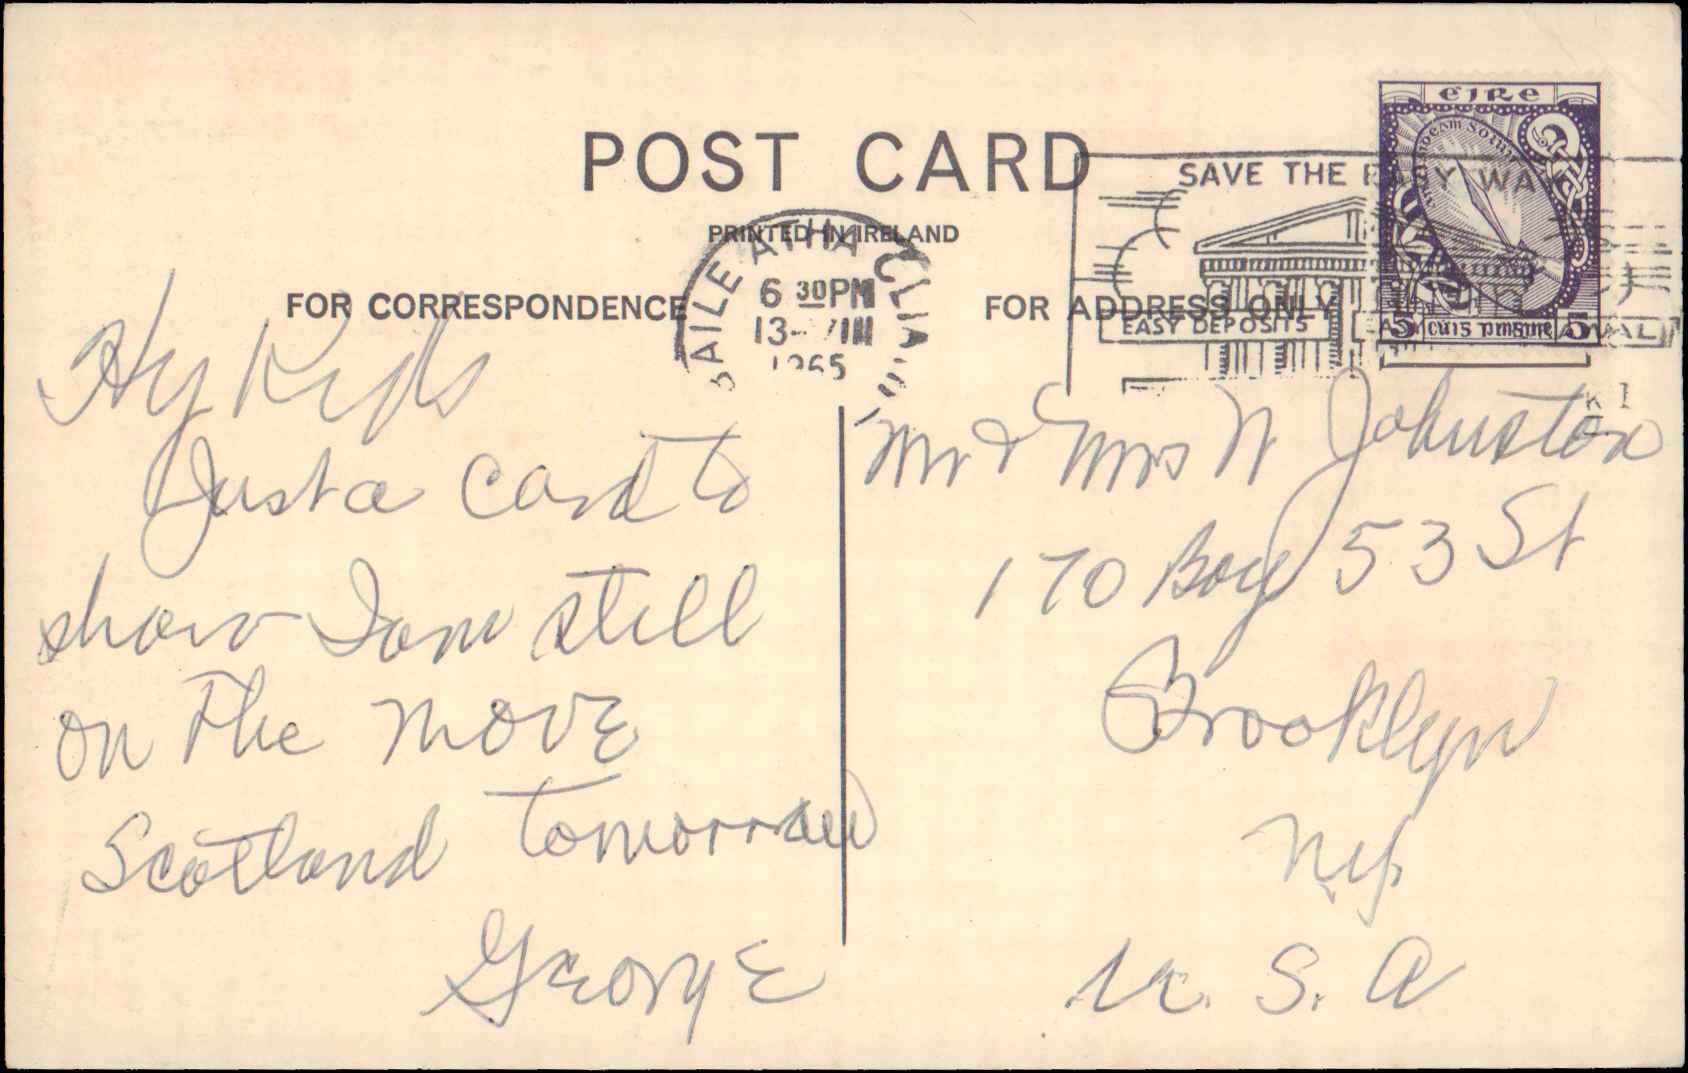 POST CARD
PRINTED IN IRELAND
FOR CORRESPONDENCE
FOR ADDRESS ONLY
BAILE ATHA CLIATH
6 30PM
13- VIII
1965
SAVE THE EASY WAY
EASY DEPOSITS
EIRE
5
5
Hy Kids
Just a card to
show I am still
on the move
Scotland tomorrow
George
Mr & Mrs W Johnston
170 Bay 53 St
Brooklyn
N.Y.
U. S. A